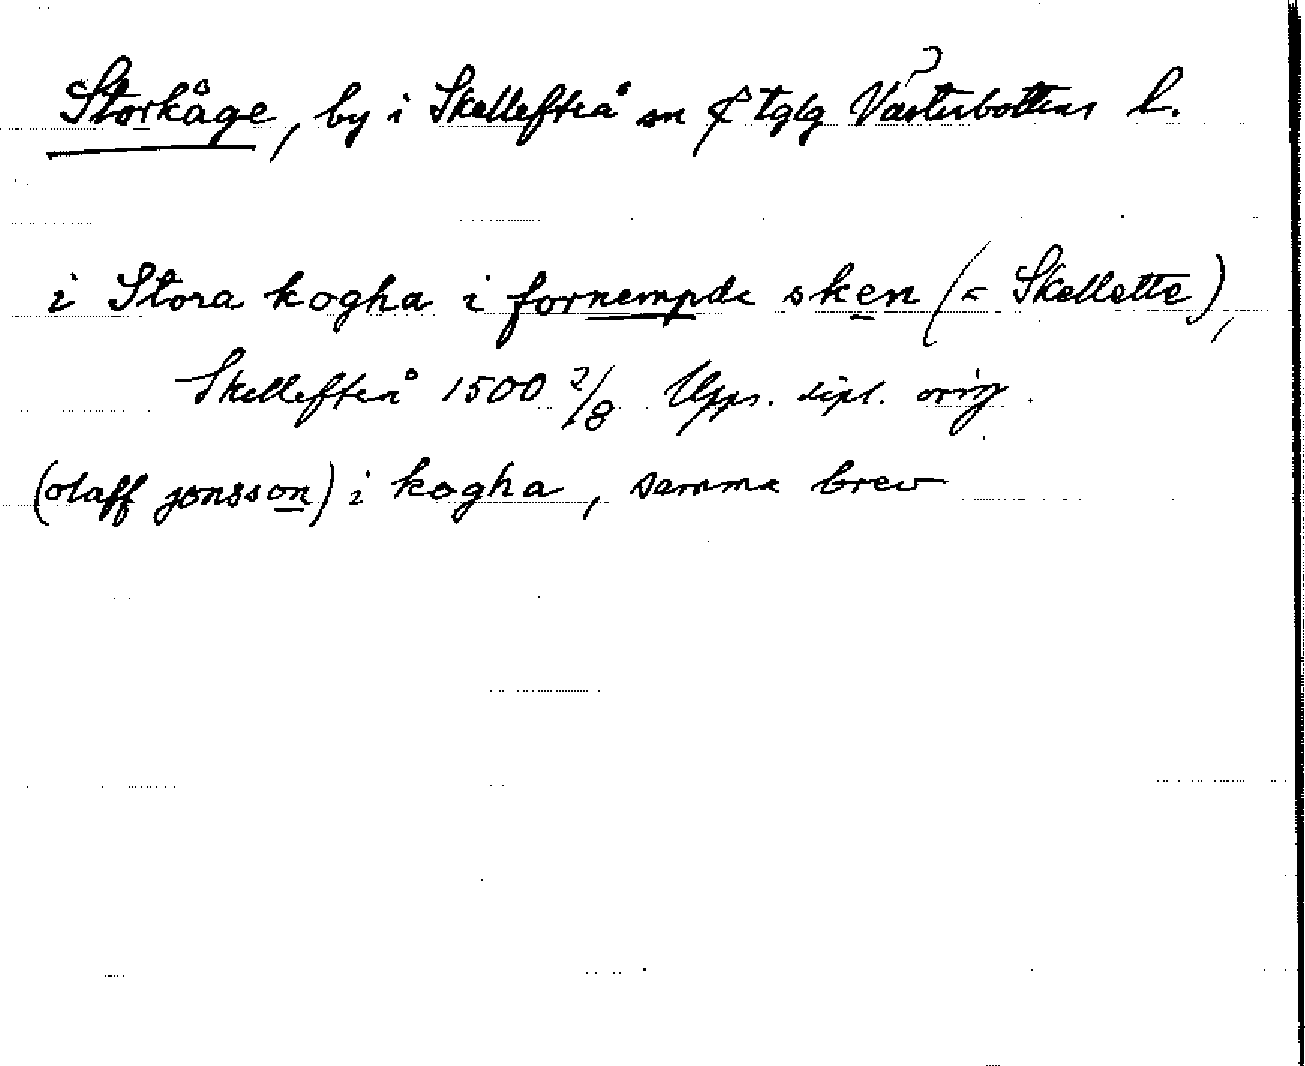 Storkåge, by i Skellefteå sn & tglg Västerbottens l.
i Stora kogha i fornempde sken (= Skellette),
Skellefteå 1500 2/8 Upps. dipl. orig.
(olaff jonsson) i kogha, samma brev